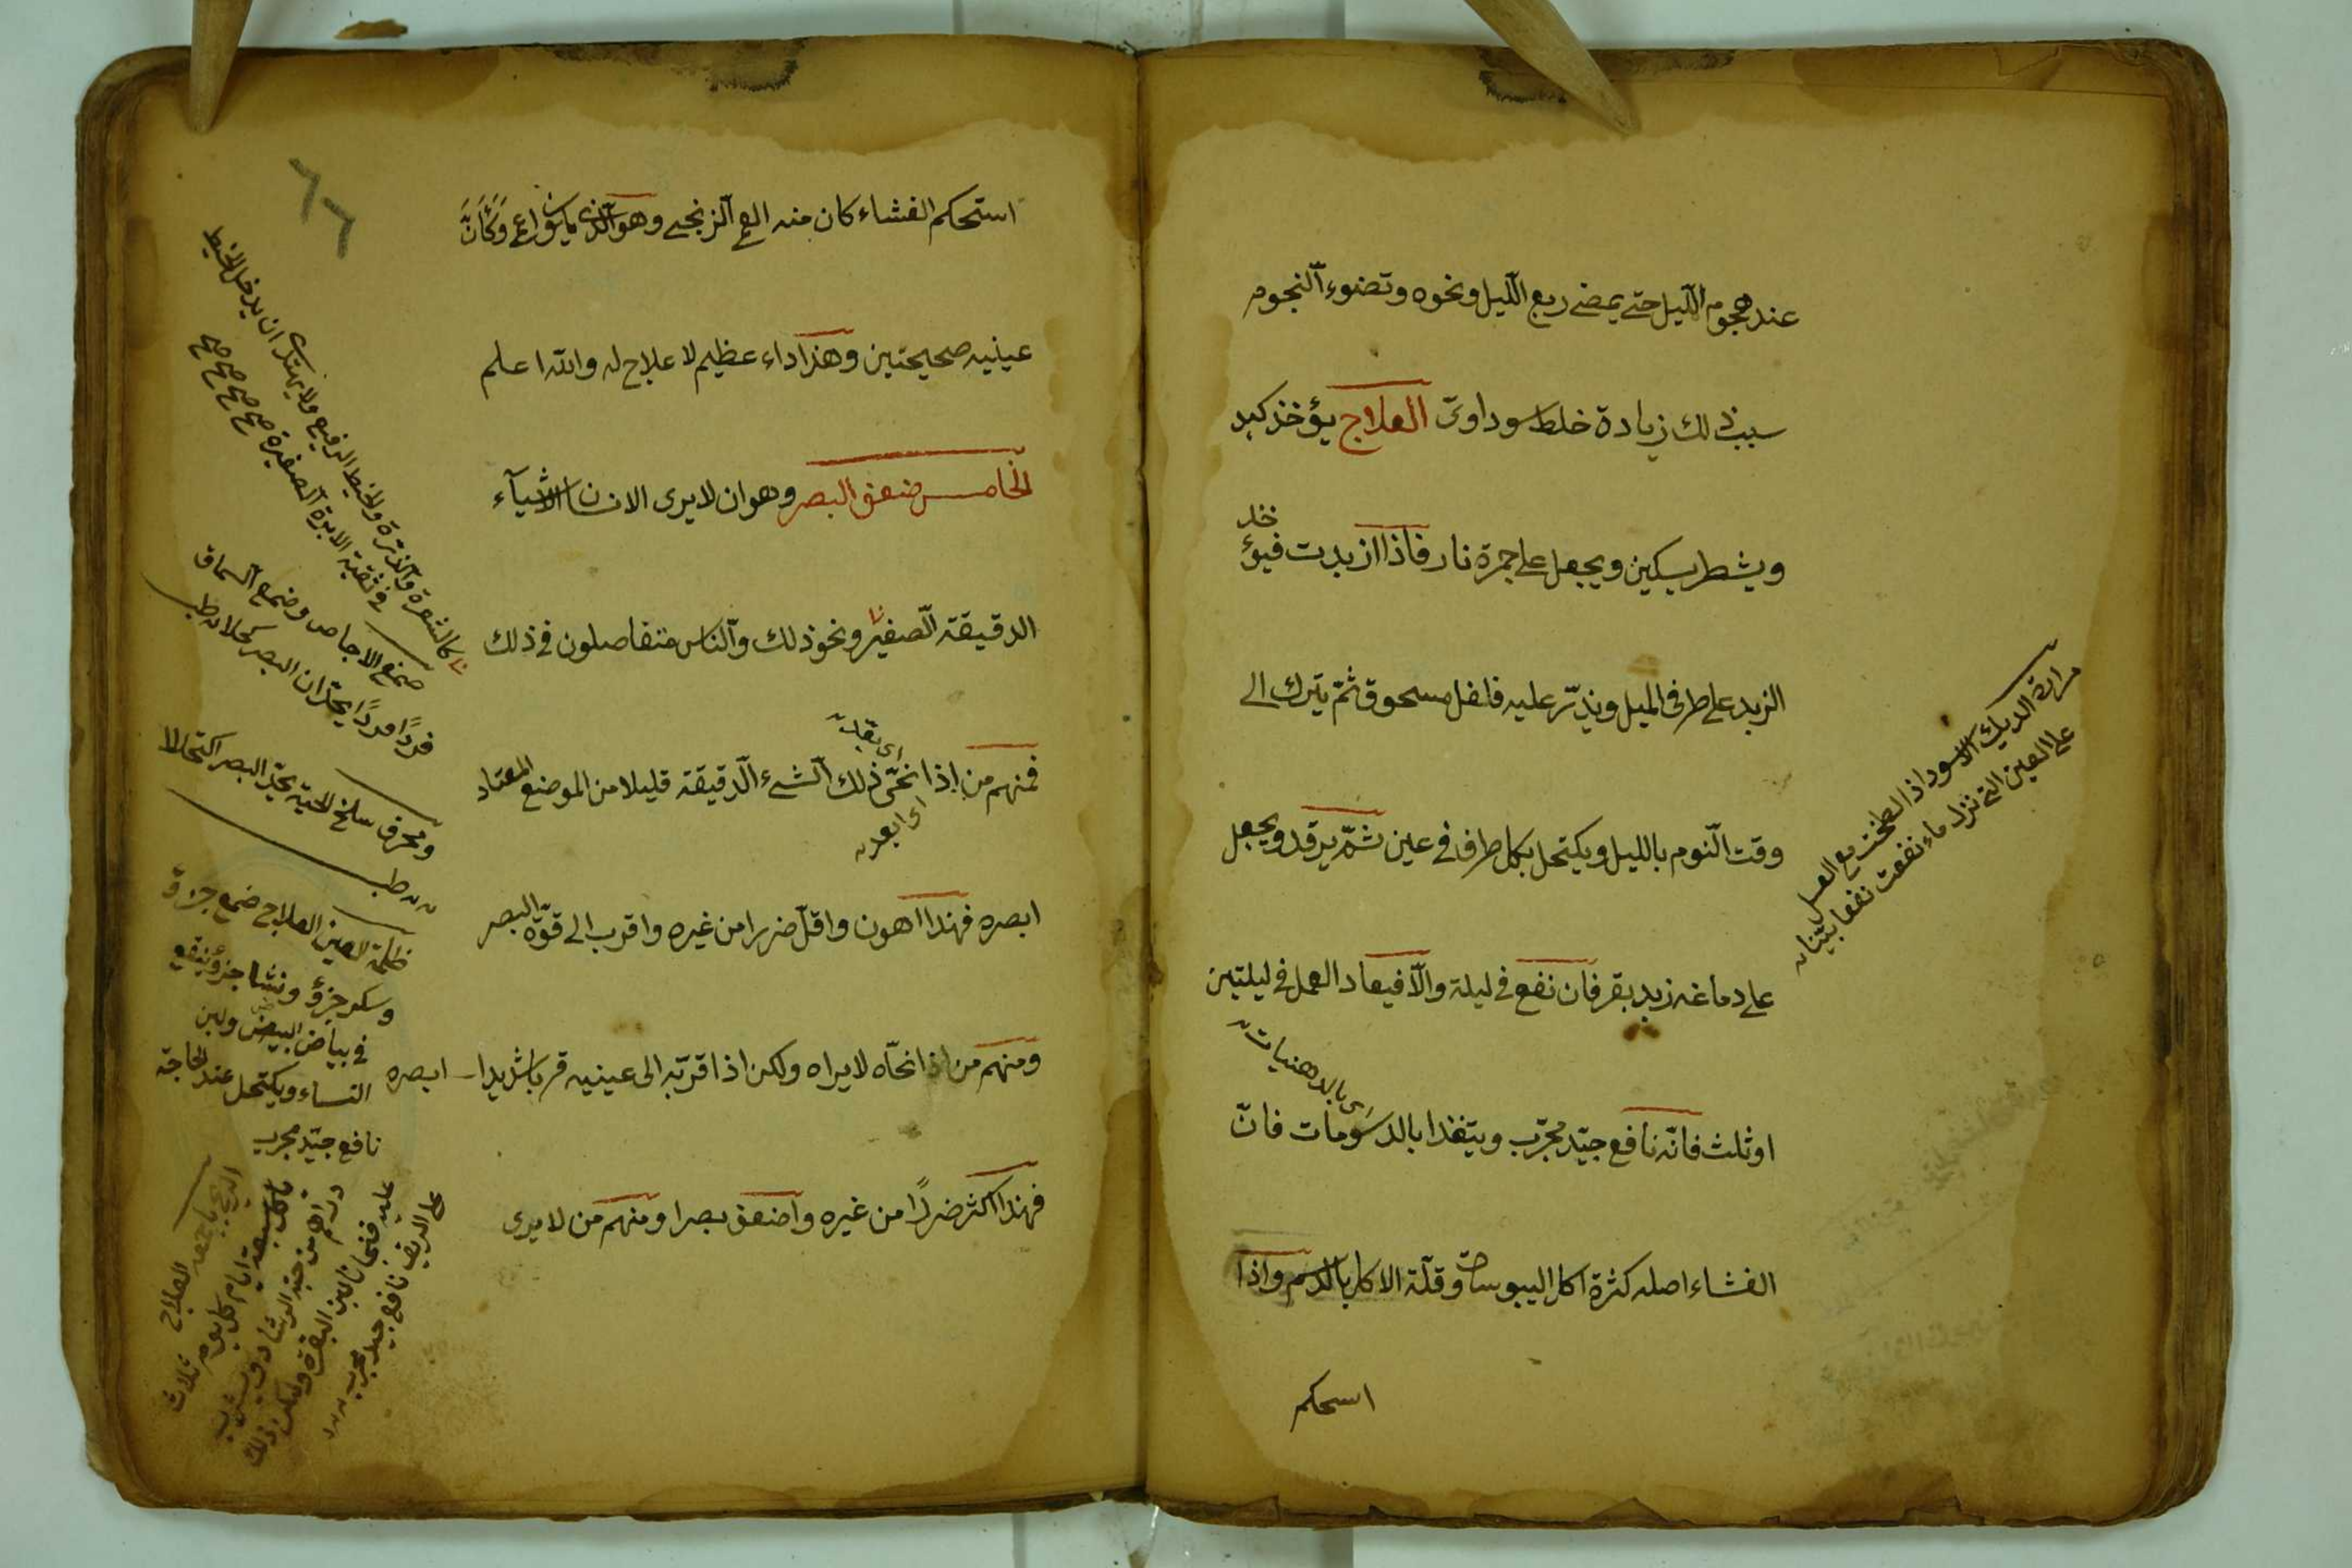 عند هجوم الليل حتى يمضى ربع الليل ونحوه وتضوء النجوم
سبب ذلك زيادة خلط سوداوى العلاج يؤخذ كبد
ويشطر بسكين ويجعل على جمرة نار فاذا ازبدت فيؤخذ
الزبد على طرفى الميل ويذر عليه فلفل مسحوق ثم يترك الى
وقت النوم بالليل ويكتحل بكل طرف فى عين ثم يرقد ويجعل
على دماغه زبد بقر فان نفع فى ليلة والا فيعاد العمل فى ليلتين
اى بالدهنيات
او ثلث فانه نافع جيد مجرب ويتغذا بالدسومات فان
الغشاء اصله كثرة اكل اليبوسات وقلة الاكل بالدسم واذا
استحكم
مرارة الديك الاسود اذا لطخت مع العسل
على العين التى نزل ماء نفعت نفعا بينا
استحكم الغشاء كان منه العمى الزنجى وهو الذى يكون اعمى وكأن
عينيه صحيحتين وهذا داء عظيم لا علاج له والله اعلم
الخامس ضعف البصر وهو ان لا يرى الانسان الاشياء
الدقيقة الصغيرة ونحو ذلك والناس متفاصلون فى ذلك
فمنهم من اذا نحى ذلك الشىء الدقيقة قليلا من الموضع المعتاد
اى ابعد
ابصره فهذا اهون واقل ضررا من غيره واقرب الى قوة البصر
ومنهم من اذا نحاه لا يراه ولكن اذا قربه الى عينيه قربا شديدا ابصره
فهذا اكثر ضررا من غيره واضعف بصرا ومنهم من لا يرى
كالشعرة والذرة والخيط الرفيع ولا يهتدى ان يدخل الخيط
فى ثقبة الابرة الصغيرة صح صح صح صح
صمغ الاجاص وصمغ السماق
فردا فردا يحدان البصر كحلا
ومحرق سلخ الحية يحد البصر اكتحالا
ظلمة العين العلاج صمغ جزؤ
وسكر جزؤ ونشا جزؤ ينقع
فى بياض البيض ولبن
النساء ويكتحل عند الحاجة
نافع جيد مجرب
العلاج
ياكل سبعة ايام كل يوم ثلاث
دراهم من حبة الرشاد ويشرب
عليه فنجانا لبن البقرة وليكن ذلك
على الريق نافع جيد مجرب